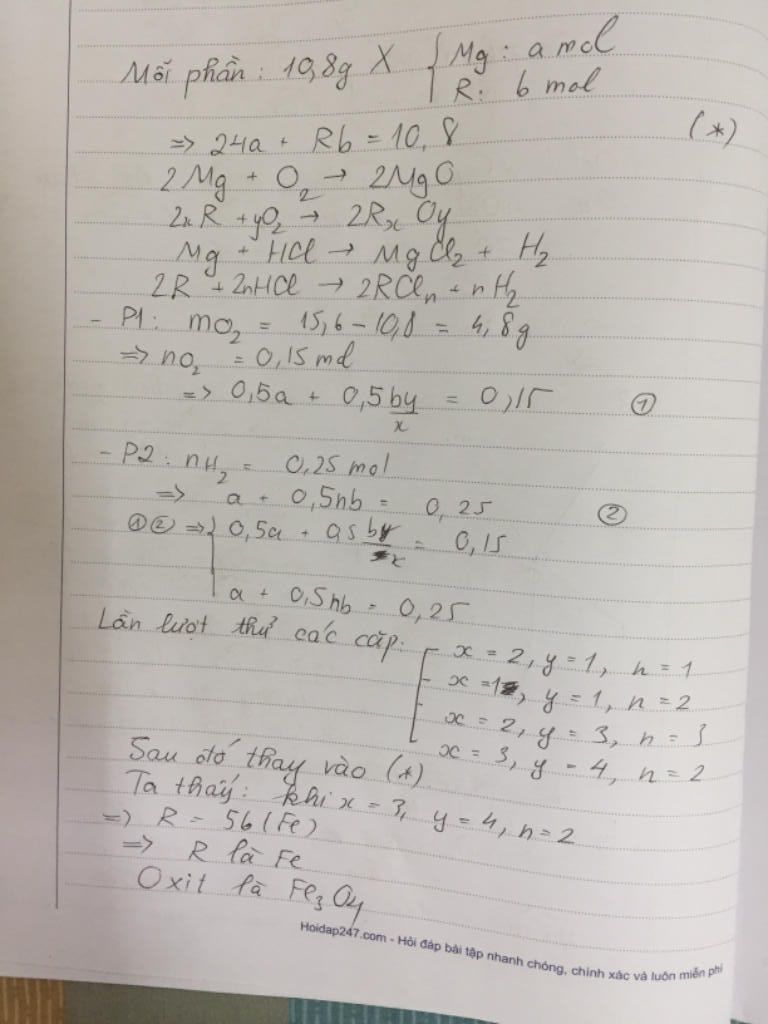 Mỗi phần: 10,8g X { Mg: a mol
R: b mol
=> 24a + Rb = 10,8 (*)
2Mg + O2 → 2MgO
2xR + yO2 → 2RxOy
Mg + HCl → MgCl2 + H2
2R + 2nHCl → 2RCln + nH2
- P1: mO2 = 15,6 - 10,8 = 4,8g
=> nO2 = 0,15 mol
=> 0,5a + 0,5by/x = 0,15 ①
- P2: nH2 = 0,25 mol
=> a + 0,5nb = 0,25 ②
①② => { 0,5a + 0,5by/x = 0,15
a + 0,5nb = 0,25
Lần lượt thử các cặp: [ x = 2, y = 1, n = 1
x = 1, y = 1, n = 2
x = 2, y = 3, n = 3
x = 3, y = 4, n = 2
Sau đó thay vào (*)
Ta thấy: khi x = 3, y = 4, n = 2
=> R = 56 (Fe)
=> R là Fe
Oxit là Fe3O4
Hoidap247.com - Hỏi đáp bài tập nhanh chóng, chính xác và luôn miễn phí